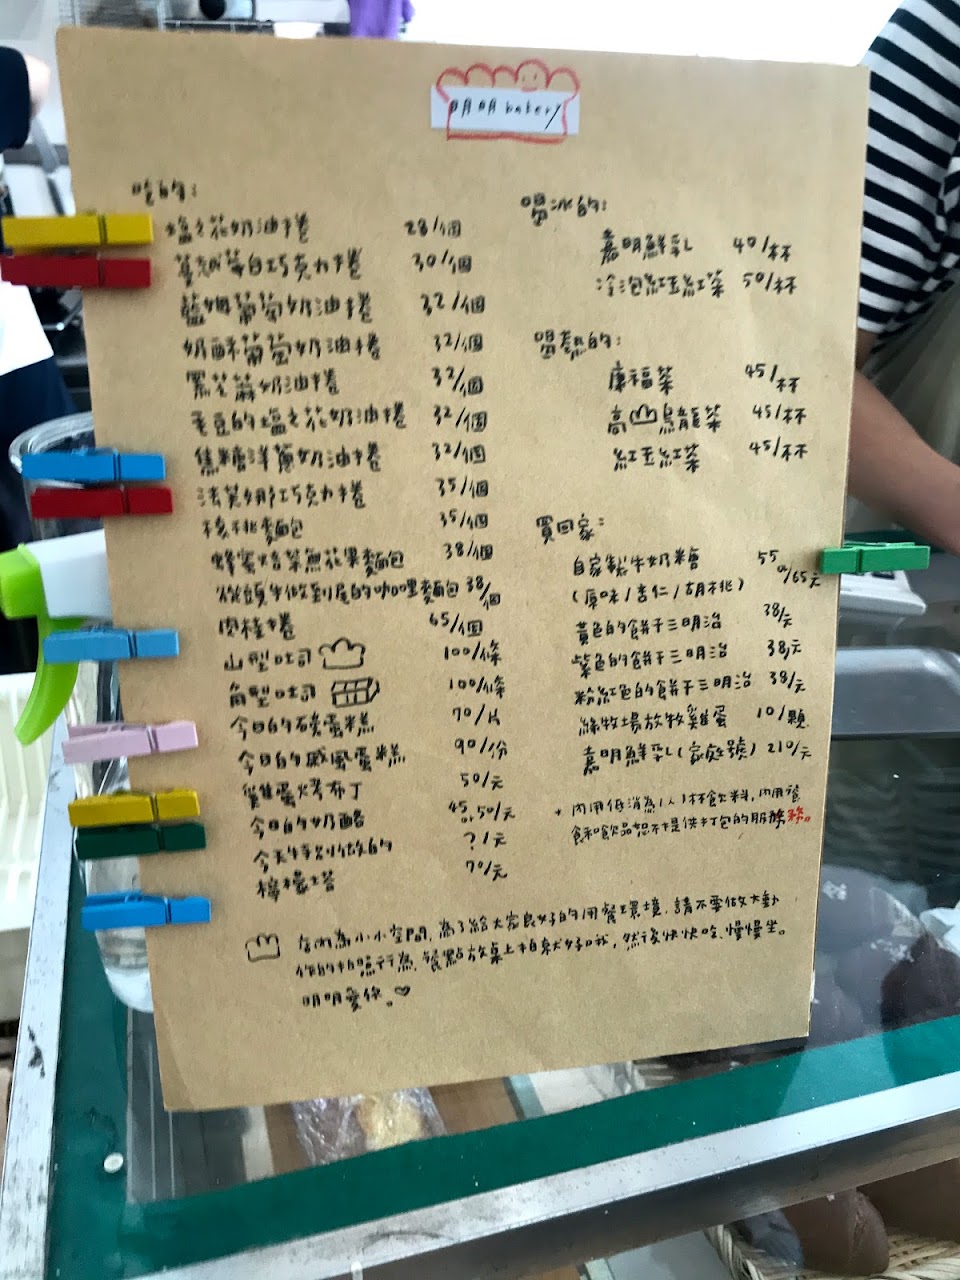 明明 bakery
吃的:
塩之花奶油捲 28/個
蔓越莓白巧克力捲 30/個
藍姆葡萄奶油捲 32/個
奶酥葡萄奶油捲 32/個
黑芝蔴奶油捲 32/個
毛豆的塩之花奶油捲 32/個
焦糖洋蔥奶油捲 32/個
法芙娜巧克力捲 35/個
核桃麵包 35/個
蜂蜜焙茶無花果麵包 38/個
從頭牛做到尾的咖哩麵包 38/個
肉桂捲 65/個
山型吐司 100/條
角型吐司 100/條
今日的磅蛋糕 70/片
今日的戚風蛋糕 90/份
雞蛋烤布丁 50/元
今日的奶酪 45or50/元
今天特別做的 ?/元
檸檬塔 70/元
喝冰的:
嘉明鮮乳 40/杯
冷泡紅玉紅茶 50/杯
喝熱的:
康福茶 45/杯
高山烏龍茶 45/杯
紅玉紅茶 45/杯
買回家:
自家製牛奶糖 55or/65元
(原味/杏仁/胡桃)
黃色的餅干三明治 38/元
紫色的餅干三明治 38/元
粉紅色的餅干三明治 38/元
綠牧場放牧雞蛋 10/顆
嘉明鮮乳(家庭號) 210/元
* 內用低消為1人1杯飲料,內用餐
食和飲品恕不提供打包的服務。
店內為小小空間,為了給大家良好的用餐環境,請不要做大動
作的拍照行為,餐點放桌上拍就好哦,然後快快吃、慢慢坐。
明明愛你。♡